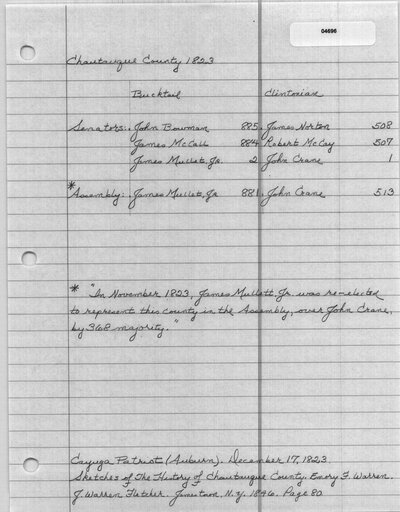 04696
Chautauque County 1823
Bucktail Clintonian
Senators: John Bowman 885. James Norton 508
James McCall 884 Robert McCay 507
James Mullett, Jr. 2 John Crane 1
* Assembly: James Mullett, Jr 881. John Crane 513
* "In November 1823, James Mullett Jr. was re-elected
to represent this county in the Assembly, over John Crane,
by 368 majority."
Cayuga Patriot (Auburn). December 17, 1823
Sketches of The History of Chautauque County. Emory F. Warren.
J. Warren Fletcher. Jamestown, N.Y. 1846. Page 80